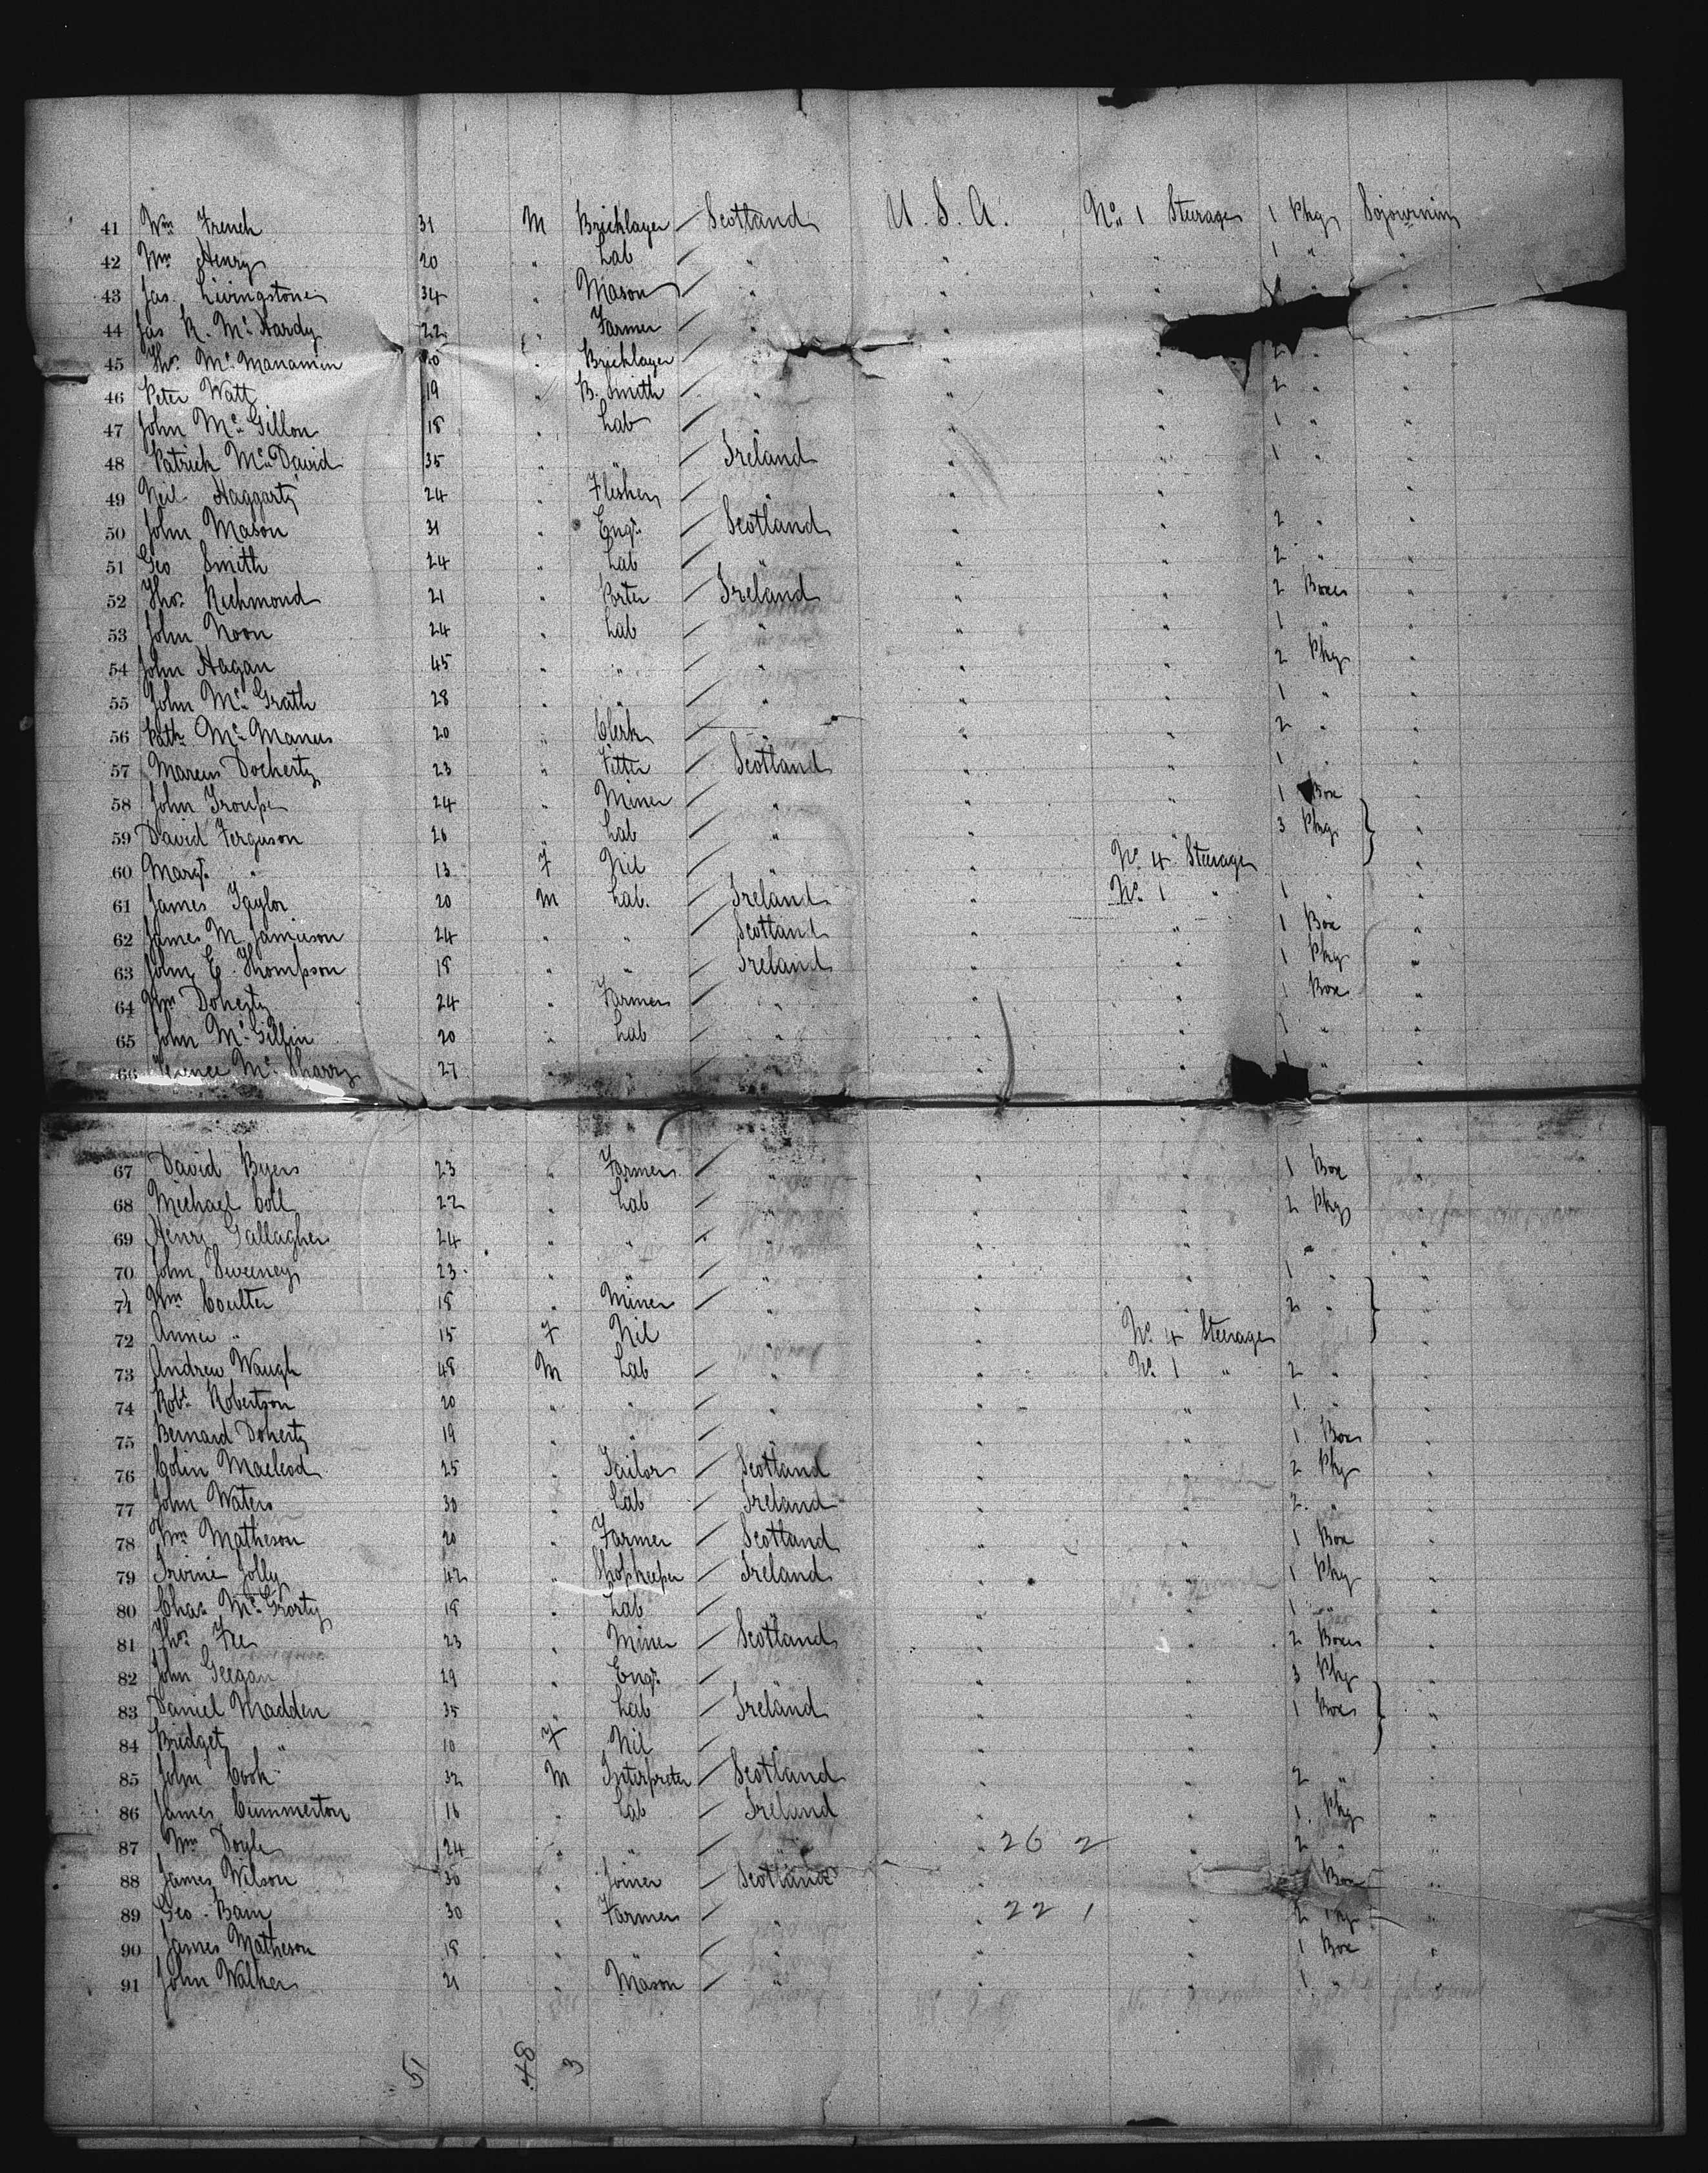 41 Wm French 31 M Bricklayer Scotland U. S. A. No. 1 Steerage 1 Pkg Sojourning
42 Wm Henry 20 " Lab " " " 1 " "
43 Jas. Livingstone 34 " Mason " " " " "
44 Jas R. Mc Hardy 22 " Farmer " " "
45 Thos. Mc Manamin " Bricklayer " " " 2 " "
46 Peter Watt 19 " B. Smith " " " 2 " "
47 John Mc Gillon 18 " Lab " " " 1 " "
48 Patrick Mc David 35 " " Ireland " " 1 " "
49 Neil Haggarty 24 " Flesher " " " "
50 John Mason 31 " Engr. Scotland " " 2 " "
51 Geo Smith 24 " Lab " " " 2 " "
52 Thos. Richmond 21 " Porter Ireland " " 2 Boxes "
53 John Noon 24 " Lab " " " 1 " "
54 John Hagan 45 " " " " " 2 Pkg "
55 John Mc Grath 28 " " " " " 1 " "
56 Patk Mc Manus 20 " Clerk " " " 2 " "
57 Marcus Docherty 23 " Fitter Scotland " " 1 " "
58 John Troupe 24 " Miner " " " 1 Box "
59 David Ferguson 26 " Lab " " " 3 Pkg "
60 Margt. " 13 F Nil " " No. 4 Steerage "
61 James Taylor 20 M Lab. Ireland " No. 1 " 1 " "
62 James M Jamieson 24 " " Scotland " " 1 Box "
63 John E. Thompson 18 " " Ireland " " 1 Pkg "
64 Wm Doherty 24 " Farmer " " " 1 Box "
65 John Mc Gillin 20 " Lab " " " 1 " "
66 Mc Sharry 27 " " " " " 1 " "
67 David Byers 23 " Farmer " " " 1 Box "
68 Michael Coll 22 " Lab " " " 2 Pkg "
69 Henry Gallagher 24 " " " " " " "
70 John Sweeney 23 " " " " " 1 " "
71 Wm Coulter 18 " Miner " " " 2 " "
72 Annie " 15 F Nil " " No. 4 Steerage "
73 Andrew Waugh 48 M Lab " " No. 1 " 2 " "
74 Robt. Robertson 20 " " " " " 1 " "
75 Bernard Doherty 19 " " " " " 1 Box "
76 Colin Macleod 25 " Tailor Scotland " " 2 Pkg "
77 John Waters 30 " Lab Ireland " " 2 " "
78 Wm Matheson 20 " Farmer Scotland " " 1 Box "
79 Irvine Jolly 42 " Shopkeeper Ireland " " 1 Pkg "
80 Chas. Mc Grorty 18 " Lab " " " 1 " "
81 Thos. Fee 23 " Miner Scotland " " 2 Boxes "
82 John Geegan 29 " Engr. " " " 3 Pkg "
83 Daniel Madden 35 " Lab Ireland " " 1 Box "
84 Bridget " 10 F Nil " " " "
85 John Cook 32 M Interpreter Scotland " " 2 " "
86 James Cummerton 16 " Lab Ireland " " 1 Pkg "
87 Wm Doyle 24 " " " " 26 2 " 2 " "
88 James Wilson 30 " Joiner Scotland " " Box "
89 Geo. Bain 30 " Farmer " " 22 1 " 2 Pkg "
90 James Matheson 18 " " " " " 1 Box "
91 John Walker 21 " Mason " " " 1 " "
51 48 3